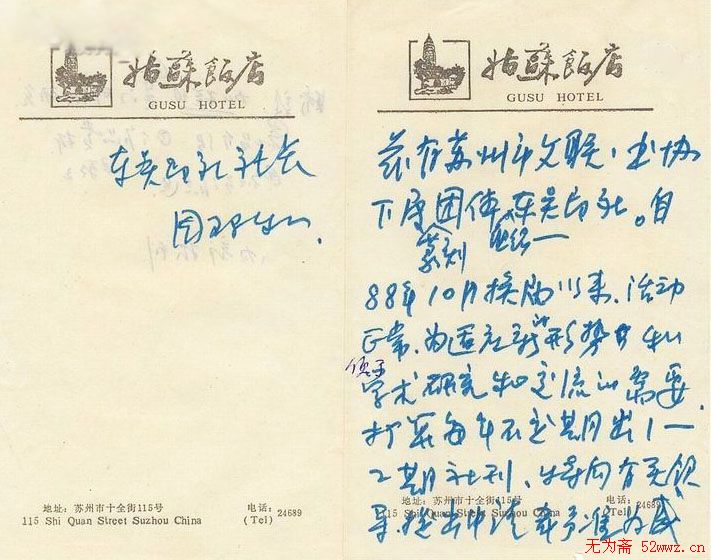 姑蘇飯店
GUSU HOTEL
东吴印社社会
地址：苏州市十全街115号
电话：
24689
115 Shi Quan Street Suzhou China
(Tel)
姑蘇飯店
GUSU HOTEL
兹有苏州市文联、书协
下属团体东吴印社。自
篆刻
88年10月换届以来，活动
正常，为适应新的形势
学术研究和交流的需要，
打算每年不定期出1一
2期社刊，特向有关领
导提出申请 准
地址：苏州市十全街115号
电话：
24689
115 Shi Quan Street Suzhou China
(Tel)
无为斋 52wwz.cn